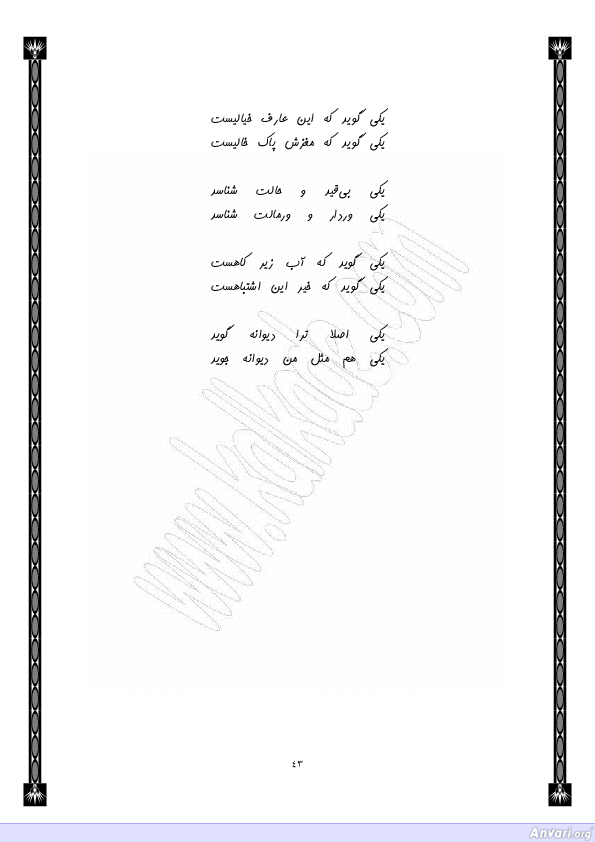 یکی گوید که این عارف خیالیست
یکی گوید که مغزش پاک خالیست
یکی بی‌قید و حالت شناسد
یکی وردار و ورمالت شناسد
یکی گوید که آب زیر کاهست
یکی گوید که خیر این اشتباهست
یکی اصلا ترا دیوانه گوید
یکی هم مثل من دیوانه جوید
www.kafkade.com
٤٣
Anvari.org